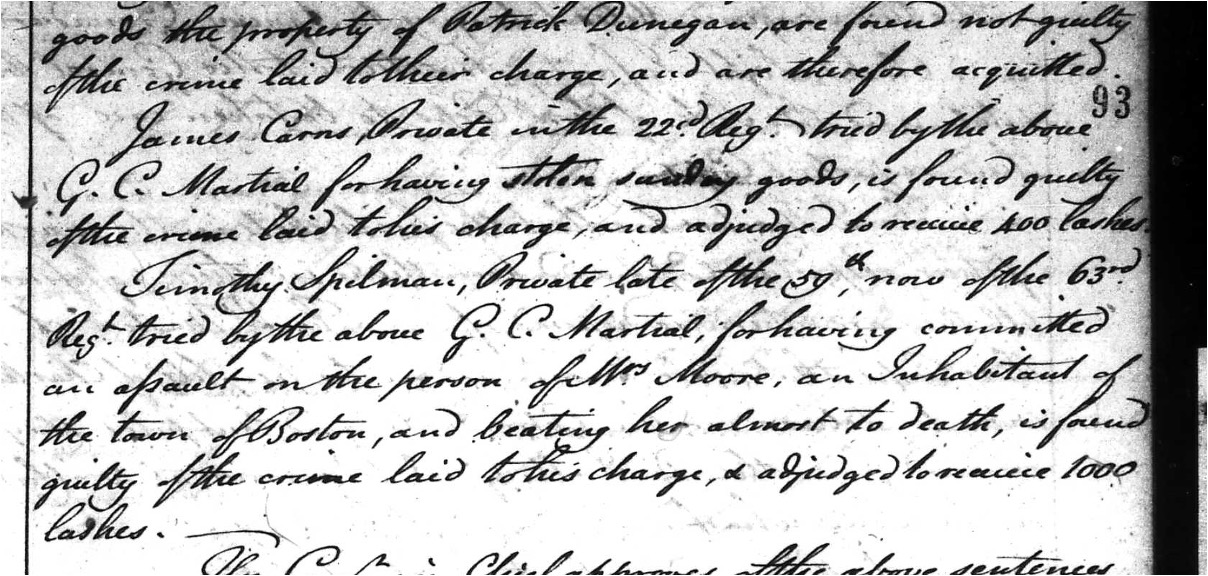 goods the property of Patrick Dunegan, are found not guilty
of the crime laid to their charge, and are therefore acquitted.
93
James Carns, Private in the 22.d Reg.t tried by the above
G. C. Martial for having stolen sunday goods, is found guilty
of the crime laid to his charge, and adjudged to receive 400 lashes.
Timothy Spilman, Private late of the 59th, now of the 63rd
Reg.t tried by the above G. C. Martial, for having committed
an assault on the person of Mrs Moore, an Inhabitant of
the town of Boston, and beating her almost to death, is found
guilty of the crime laid to his charge, & adjudged to receive 1000
lashes.
The Com in Chief approves of the above sentences